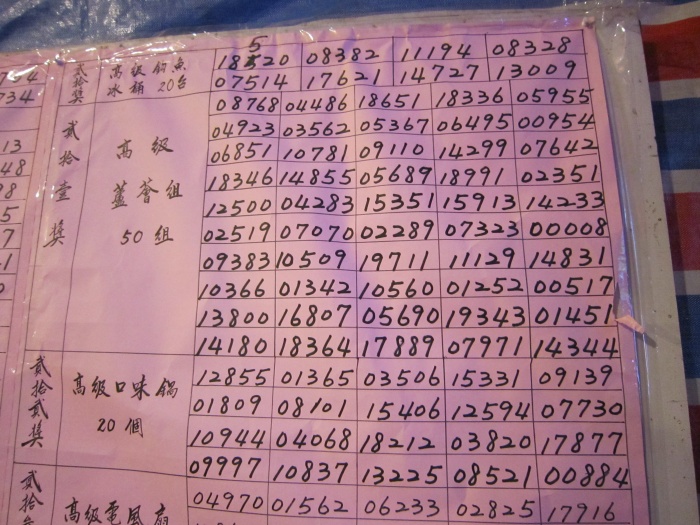 5
貳拾獎 高級釣魚冰桶20台 18520 08382 11194 08328
07514 17621 14727 13009
貳拾壹獎 高級蘆薈組50組 08768 04486 18651 18336 05955
04923 03562 05367 06495 00954
06851 10781 09110 14299 07642
18346 14855 05689 18991 02351
12500 04283 15351 15913 14233
02519 07070 02289 07323 00008
09383 10509 19711 11129 14831
10366 01342 10560 01252 00517
13800 16807 05690 19343 01451
14180 18364 17889 07971 14344
貳拾貳獎 高級口味鍋20個 12855 01365 03506 15331 09139
01809 08101 15406 12594 07730
10944 04068 18212 03820 17877
09997 10837 13225 08521 00884
貳拾 高級電風扇 04970 01562 06233 02825 17916
734
13
48